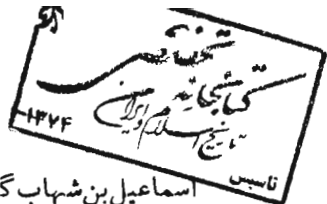 تخصصی
کتابخانه
تاریخ اسلام و ایران
تاسیس ۱۳۷۴
اسماعیل بن شهاب گ